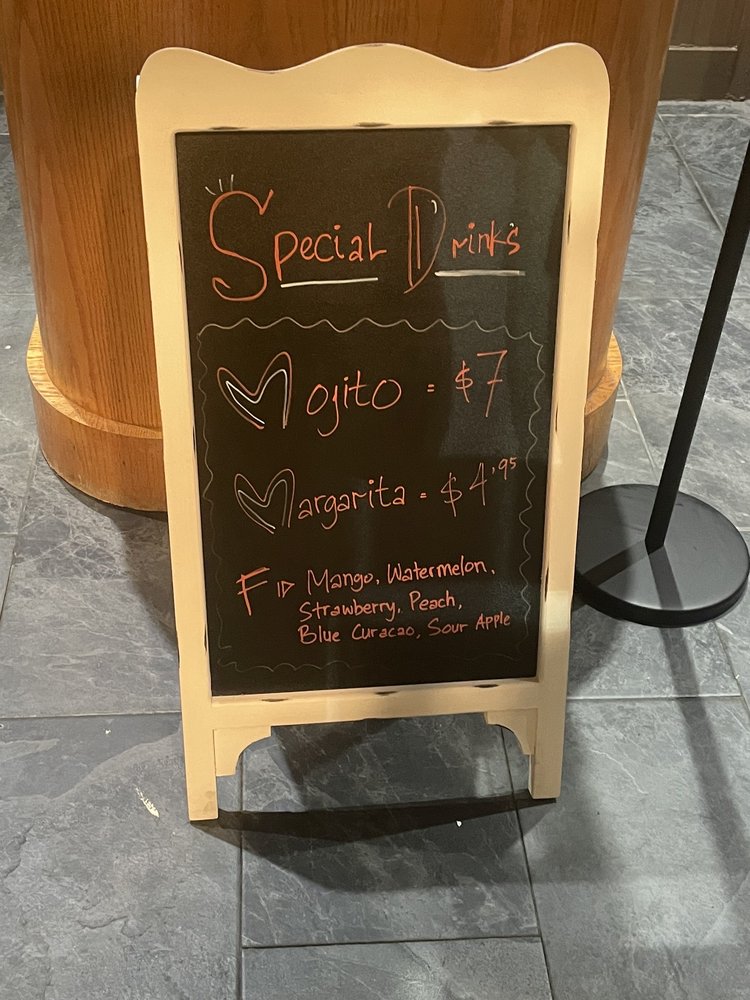 Special Drinks
Mojito = $7
Margarita = $4.95
F Mango, Watermelon,
Strawberry, Peach,
Blue Curacao, Sour Apple